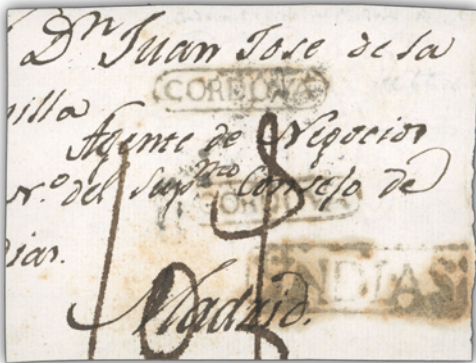 Dn. Juan Jose de la
illa
CORDOVA
Agente de Negocios
N.o del Sup.mo Consejo de
CORDOVA
dias.
INDIAS
Madrid.